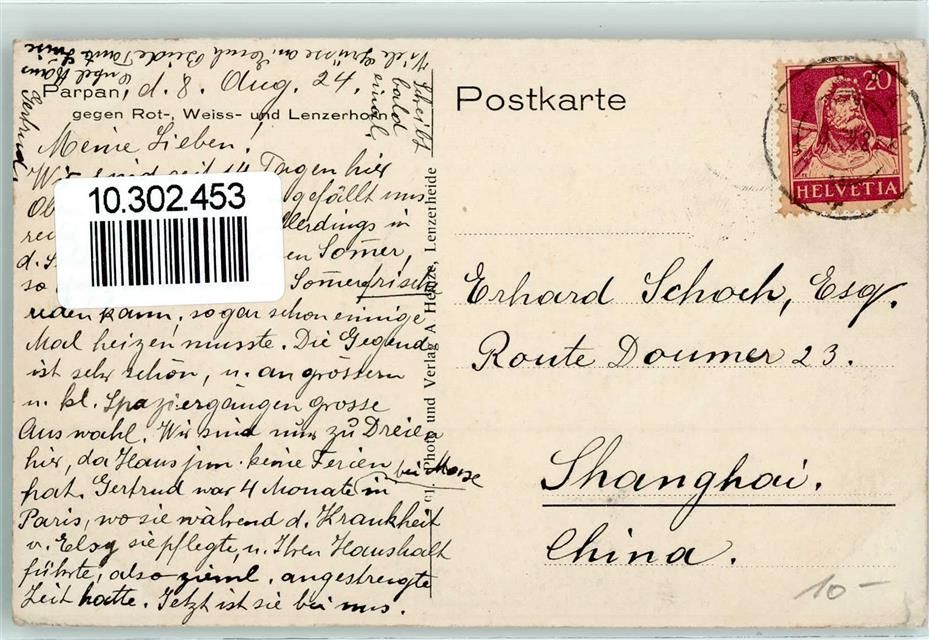 Parpan, d. 8. Aug. 24.
gegen Rot-, Weiss- und Lenzerhorn
Meine Lieben!
Wir sind seit 14 Tagen hier
gefällt uns
allerdings in
d.
Sommer,
so Sommerfrisch
reden kann, sogar schon einige
Mal heizen musste. Die Gegend
ist sehr schön, u. an grössern
u. kl. Spaziergängen grosse
Auswahl. Wir sind nur zu Dreien
hier, da Hans jun. keine Ferien
hat. Gertrud war 4 Monate in
bei
Paris, wo sie während d. Krankheit
v. Elsy sie pflegte, u. Ihren Haushalt
führte, also zieml. angestrengte
Zeit hatte. Jetzt ist sie bei uns.
Schreibt
bald
einmal,
Viele Grüsse an Euch Beide Tante
Onkel Hans
Gertrud
10.302.453
Photo und Verlag A Heinze, Lenzerheide
Postkarte
20
HELVETIA
Erhard Schoch, Esq.
Route Doumer 23.
Shanghai.
China.
10-